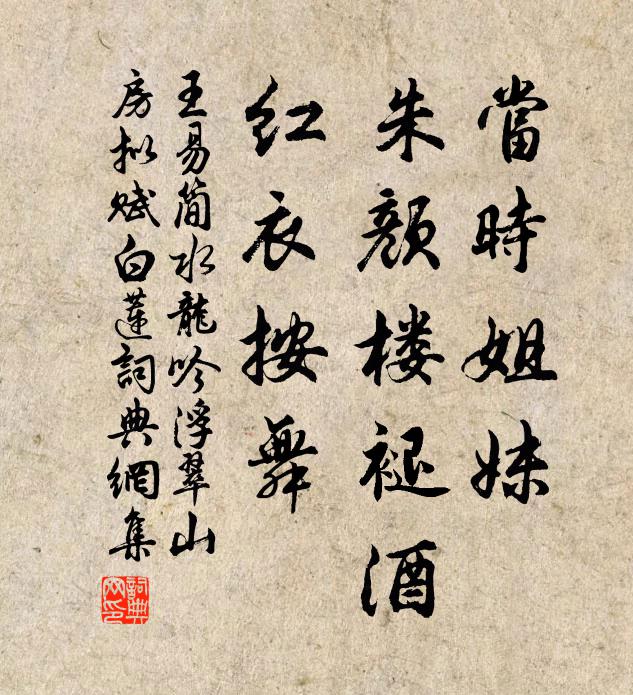 當時姐妹
朱顏楼褪酒
紅衣按舞
王易简水龍吟浮翠山
房拟赋白蓮詞典網集
詞典网印